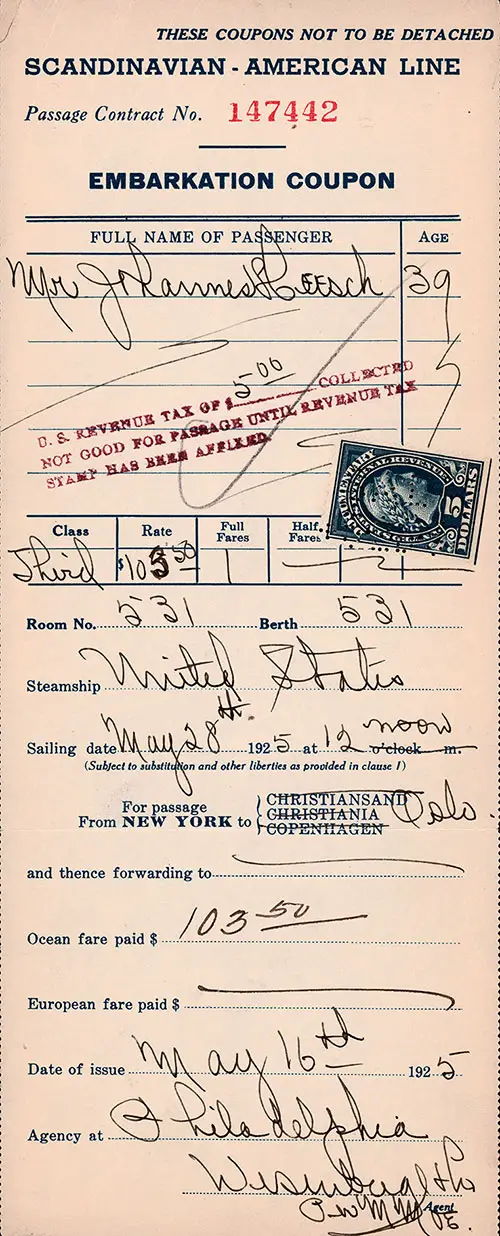 THESE COUPONS NOT TO BE DETACHED
SCANDINAVIAN - AMERICAN LINE
Passage Contract No. 147442
EMBARKATION COUPON
FULL NAME OF PASSENGER AGE
Mr Johannes Heesch 39
5.00
U. S. REVENUE TAX OF $ COLLECTED
NOT GOOD FOR PASSAGE UNTIL REVENUE TAX
STAMP HAS BEEN AFFIXED.
DOCUMENTARY
U.S. INTERNAL REVENUE
5
DOLLARS
Class Rate Full Fares Half Fares
Third $103.50 1
Room No. 531 Berth 531
Steamship United States
Sailing date May 28th 1925 at 12 noon o'clock m.
(Subject to substitution and other liberties as provided in clause I)
For passage From NEW YORK to
CHRISTIANSAND
CHRISTIANIA Oslo.
COPENHAGEN
and thence forwarding to
Ocean fare paid $ 103.50
European fare paid $
Date of issue May 16th 1925
Agency at Philadelphia
Agent